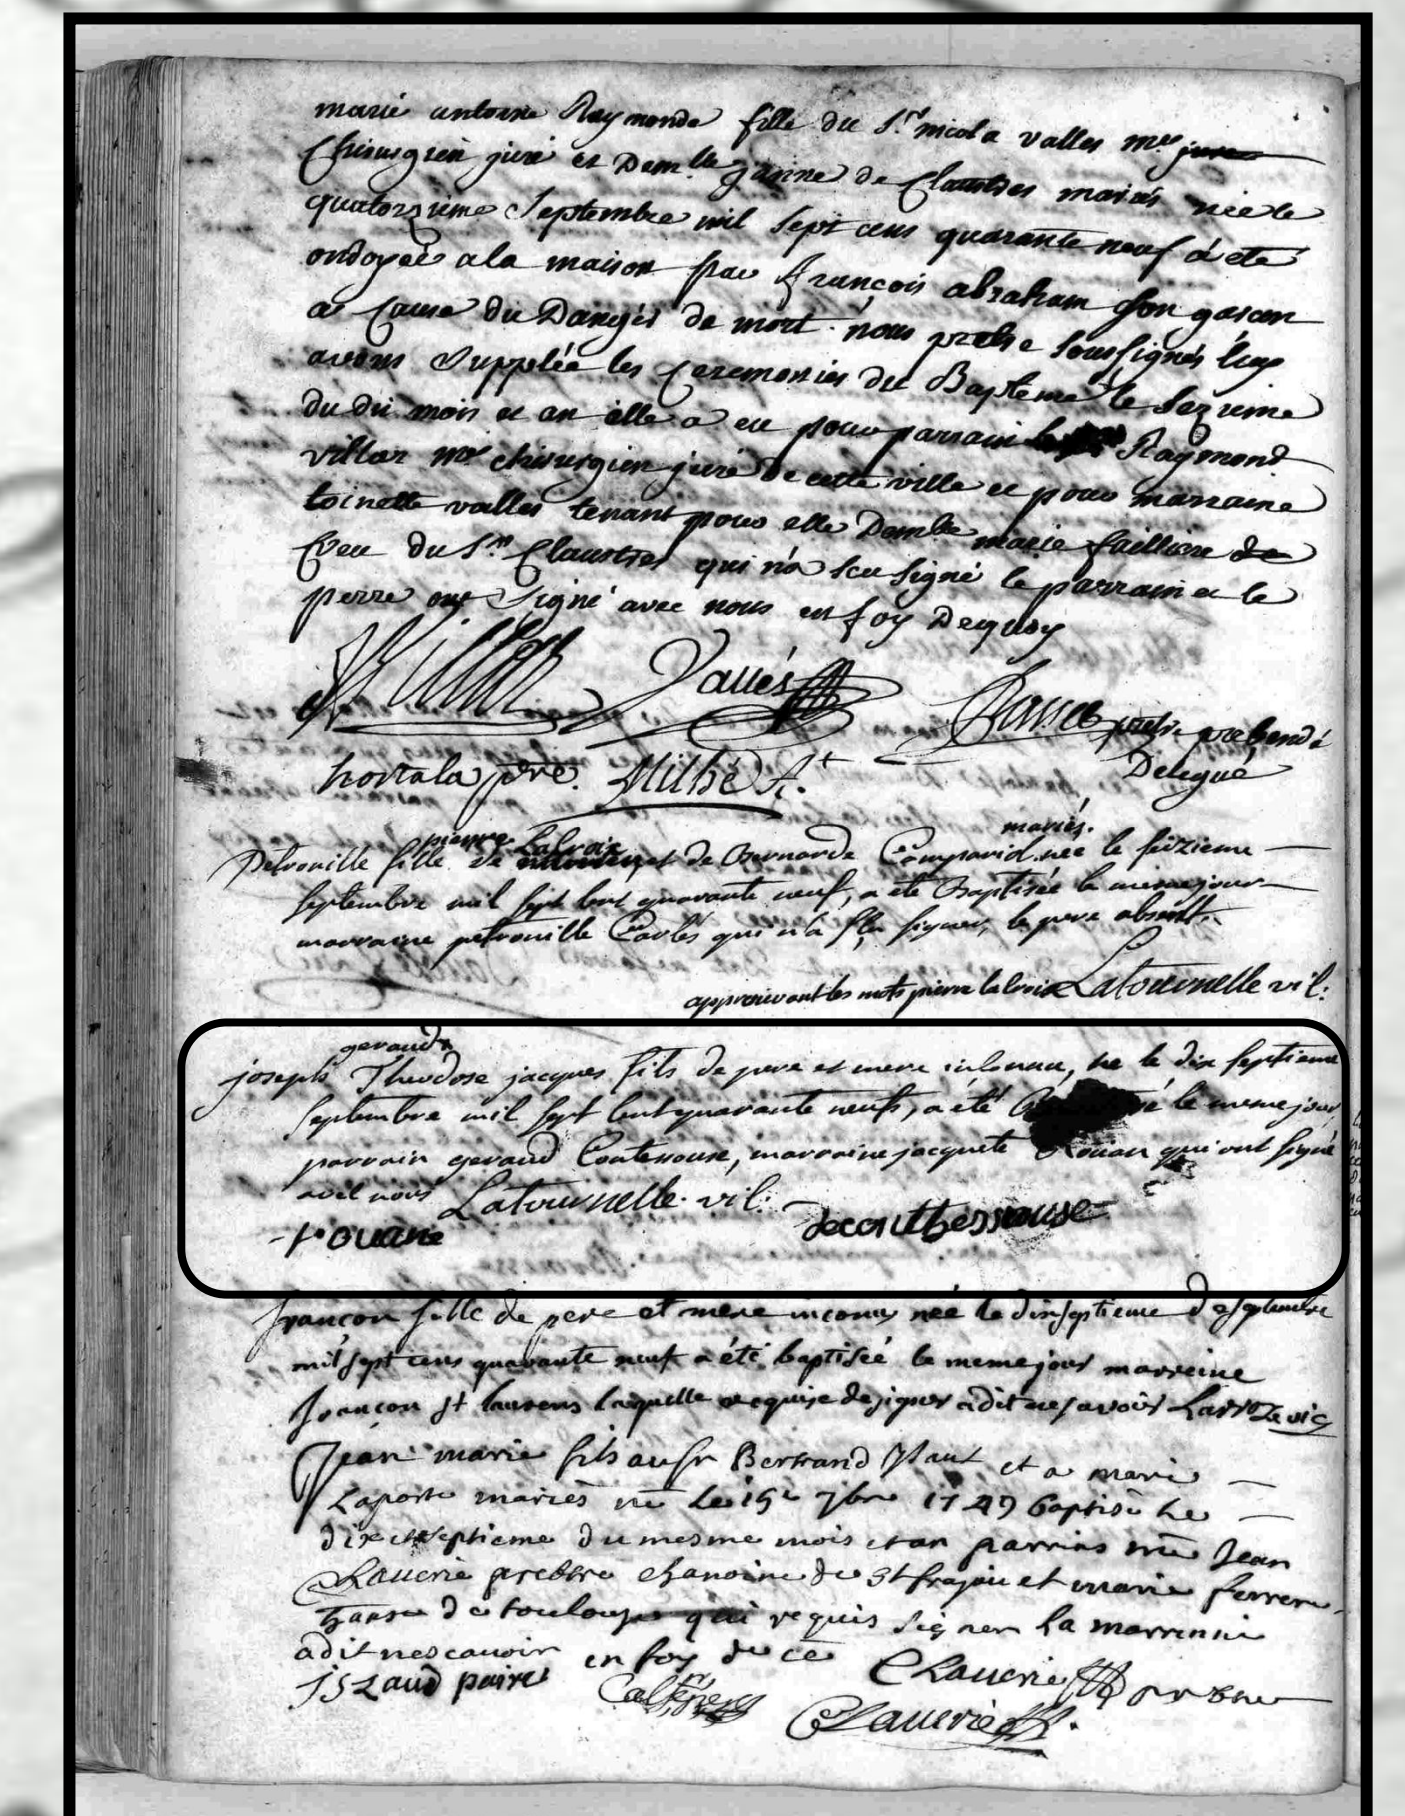 marie antoine Raymonde fille du S.r nicola valles m.re jure
Chirurgien juré et Dem.lle de Claustres mariés née le
quatorzieme Septembre mil Sept cens quarante neuf a été
ondoyée a la maison par François abraham son garcon
a Cause du Danger de mort. nous pretre soussignés luy
avons Supplée les Ceremonies du Bapteme le Sezieme
du dit mois et an elle a eu pour parrain Raymond
villar m.re chirurgien juré de cette ville et pour marraine
toinette valles tenant pour elle Demlle marie
du S.r Claustres qui n'a sceu signé le parrain et le
perre ont Signé avec nous en foy Dequoy
Villar Vallés pretre prebendé
hortala ptre. Milhé A.t Delegué
pierre Lacroix mariés.
Petronille fille de et de Bernarde née le seizieme
septembre mil sept cent quarante neuf, a été Baptisée le meme jour
marraine petronille Carlés qui n'a sçu signer, le pere absent.
approuvant les mots pierre lacroix Latournelle vic:
geraud
joseph Theodose jacques fils de pere et mere inconnu, né le dix septieme
septembre mil sept cent quarante neuf, a été le meme jour
parrain geraud Contessouse, marraine jacquete Rouan qui ont signé
avec nous Latournelle. vic:
rouane decouthessouse
françon fille de pere et mere inconus née le dixseptieme de septembre
mil sept cens quarante neuf a été baptisée le meme jour marreine
françon st laurens laquelle requise de signer a dit ne savoir vic
Jean marie fils au sr Bertrand et a marie
Laporte mariés né le 15e 7bre 1749 baptisé le
dix et septieme du mesme mois et an parrins Jean
Clauerie prebtre chanoine de St frajou et marie
de toulouse qui requis signer la marrenne
a dit ne scauoir en foy de ce Clauerie
paire Clauerie